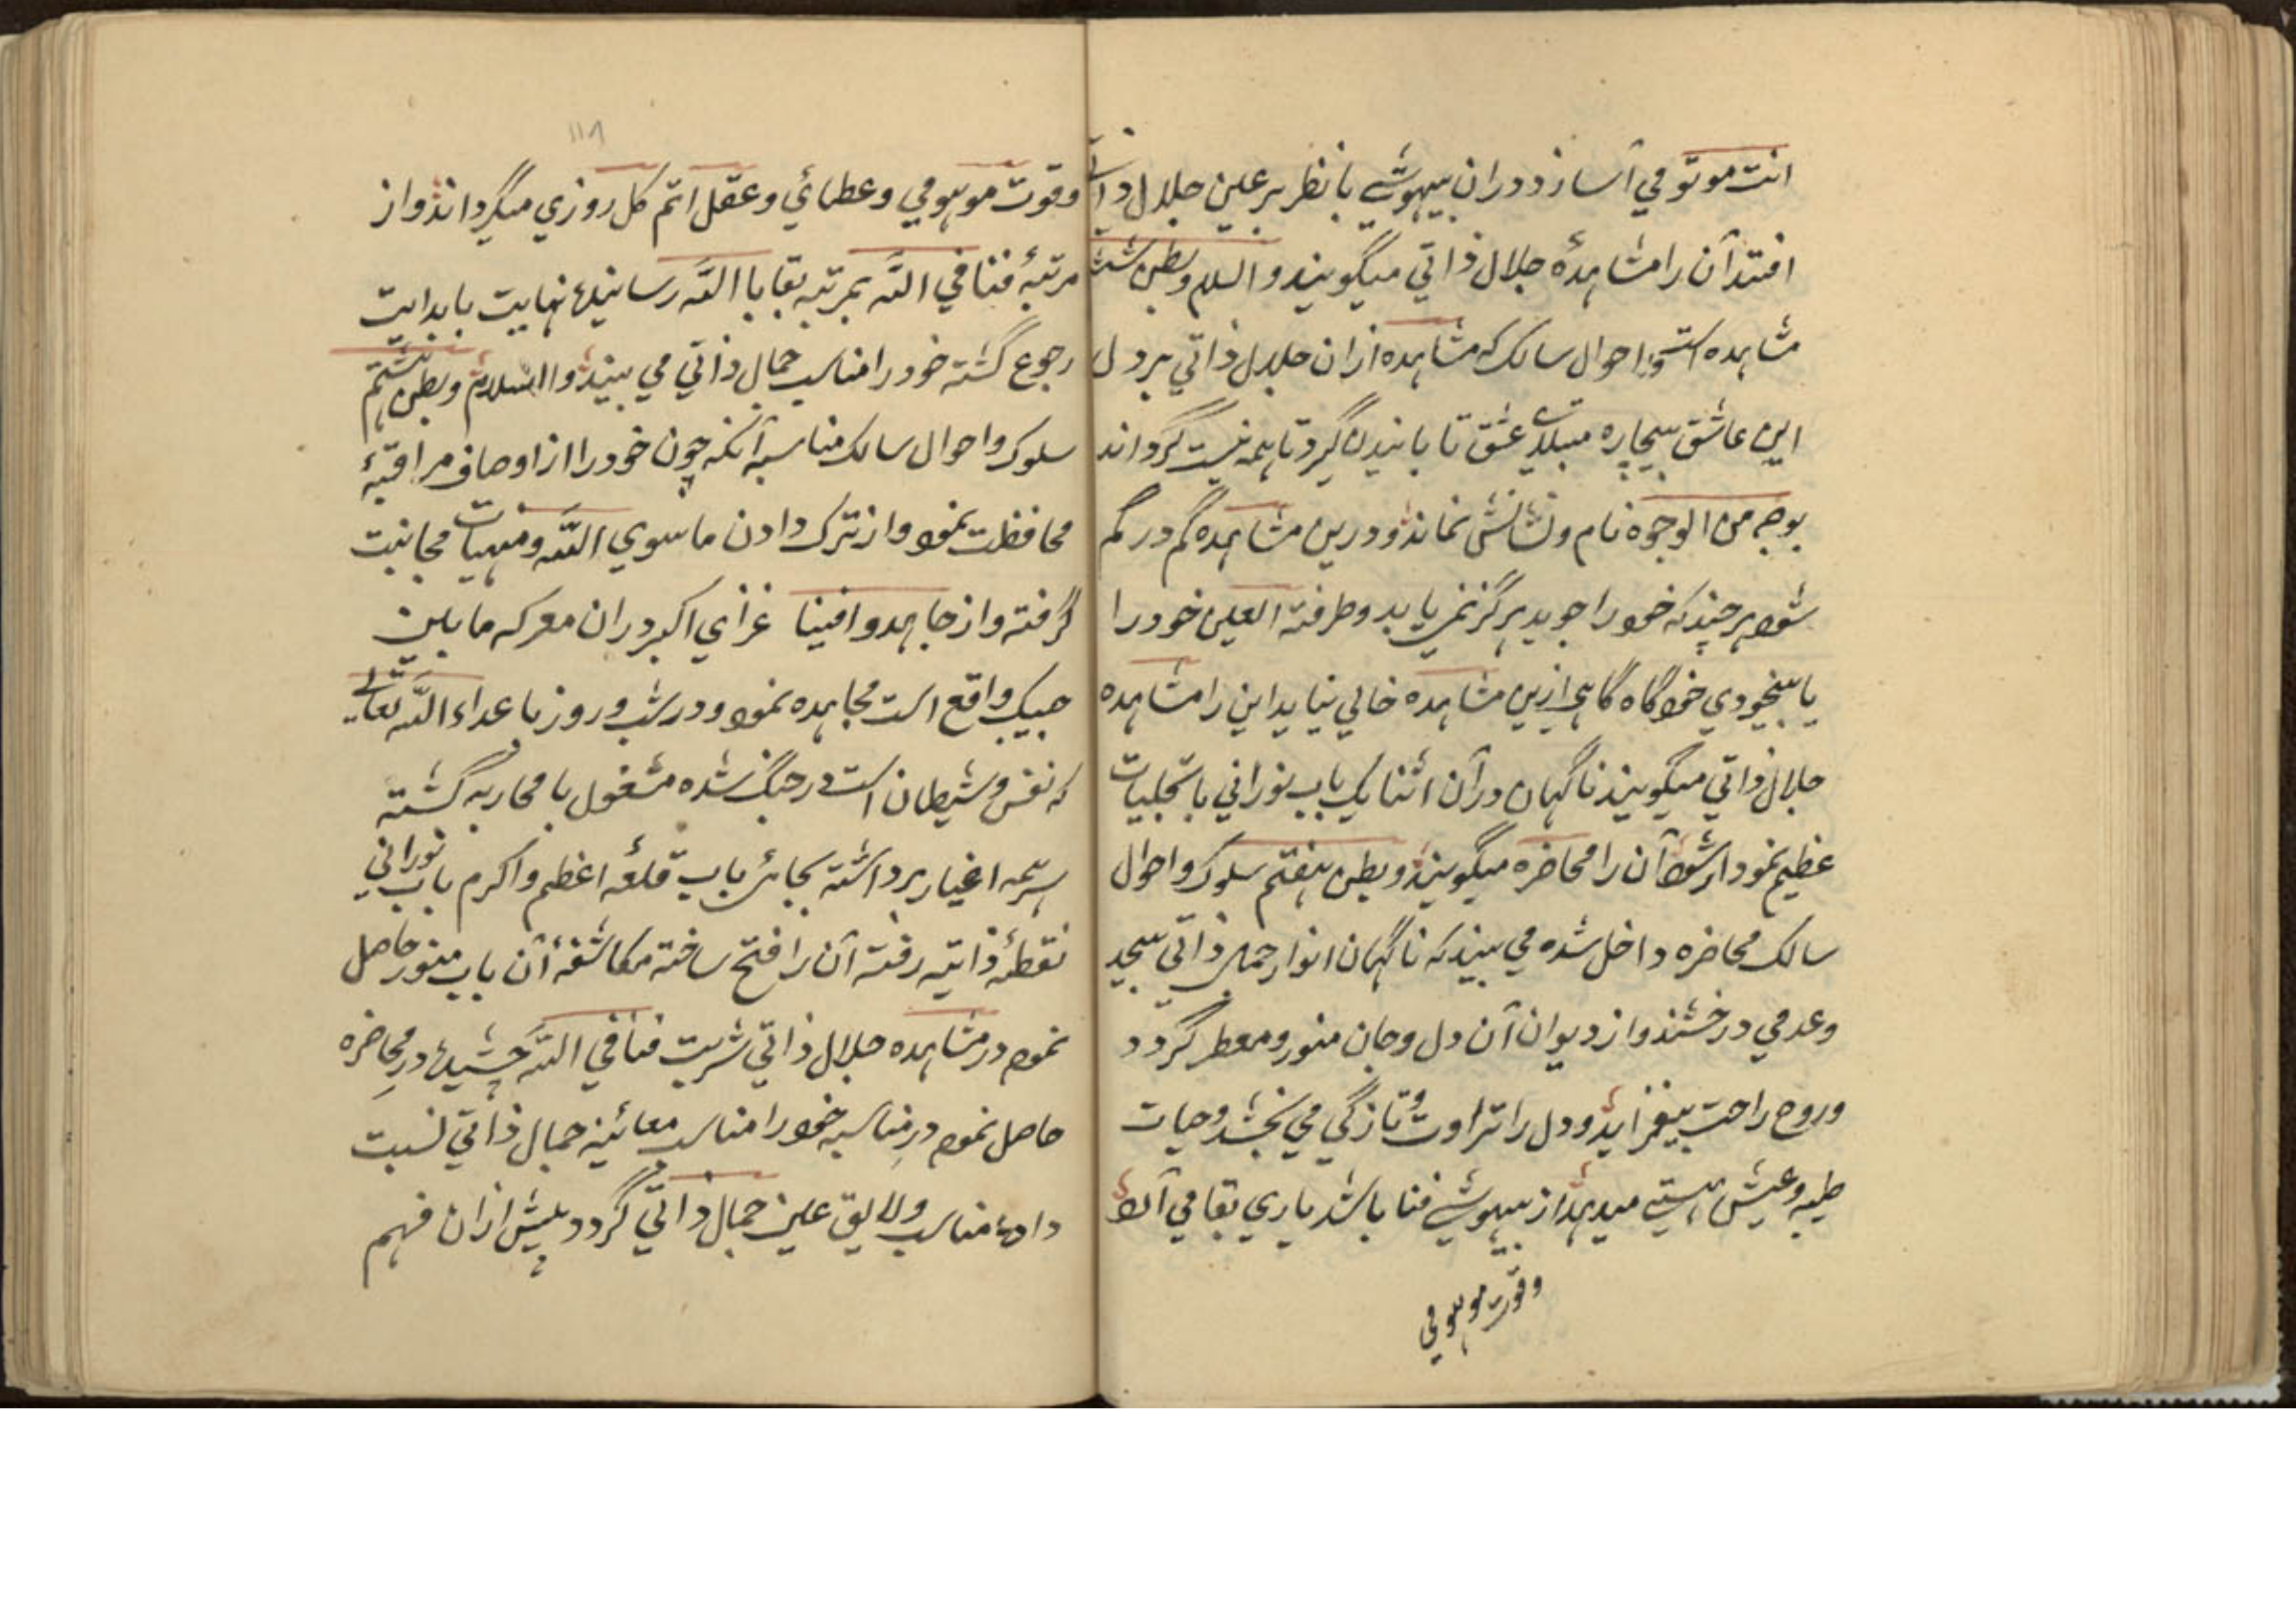 انت موتو می آسازد دران بیهوشے یا نظر بر عین جلال ذاتی
افتد آن را مشاهدهٔ جلال ذاتی میگویند و السلم وبطن ششم
مشاهده است واحوال سالک که مشاهده ازان جلال ذاتی بر دل
این عاشق بیچاره مبتلای عشق تا بانیدن گیرد تا همه نیست گرداند
بوجه من الوجوه نام ونشانش نماند ودرین مشاهده گم در گم
شود هر چند که خود را جوید هرگز نمی یابد وطرفة العین خود را
یا بیخودی خود گاه گاهی ازین مشاهده خالی نیاید این را مشاهده
جلال ذاتی میگویند ناگهان درآن اثنا یک باب نورانی با تجلیات
عظیم نمودار شود آن را محاضره میگویند وبطن هفتم سلوک واحوال
سالک محاضره داخل شده می بیند که ناگهان انوار جمال ذاتی بیحد
وعدمی درخشند واز دیوان آن دل وجان منور ومعطر گردد
وروح راحت بیفزاید ودل را تراوت وتازگی می بخشد وحیات
طیبه وعیش هستے میدهد از بیهوشے فنا باشد یاری بقا می آلاد
وقوت موهومی
۱۱۸
وقوت موهومی وعطائی وعقل اتم کل روزی میگرداند واز
مرتبهٔ فنا فی الله بمرتبه بقا با الله رسانیده نهایت با بدایت
رجوع گشته خود را مناسب جمال ذاتی می بیند والسلام وبطن هشتم
سلوک واحوال سالک مناسبه آنکه چون خود را از اوصاف مراقبهٔ
محافظت نموده واز ترک دادن ما سوی الله ومنهیات مجانبت
گرفته واز جاهدوا فینا غزای اکبر دران معرکه مابین
جبیک واقع است مجاهده نموده ودر شب وروز با اعداء الله تعالی
که نفس وشیطان است در جنگ شده مشغول با محاربه گشته
سر همه اغیار برداشته بجائی باب قلعه اعظم واکرم باب نورانی
نقطهٔ ذاتیه رفته آن را فتح ساخته مکاشفهٔ آن باب منور حاصل
نموده در مشاهده جلال ذاتی شربت فنا فی الله چشیده در محاضره
حاصل نموده در مناسبه خود را مناسب معائنه جمال ذاتی نسبت
داده مناسب ولایق عین جمال ذاتی گردد پیش ازان فهم